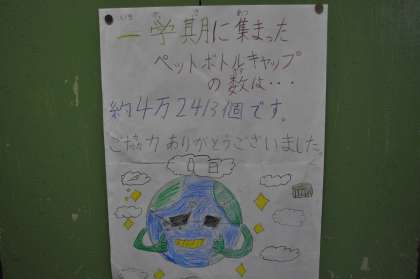 一学期に集まった
ペットボトルキャップ
の数は・・・
約4万2413個です。
ご協力ありがとうございました